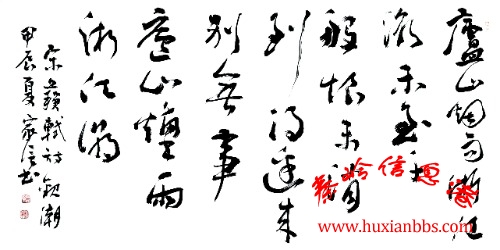 廬山烟雨浙江
潮未至千
般恨未消
到得還來
别無事
廬山煙雨
浙江潮
宋蘇軾詩觀潮
甲辰夏家信书
www.huxianbbs.com